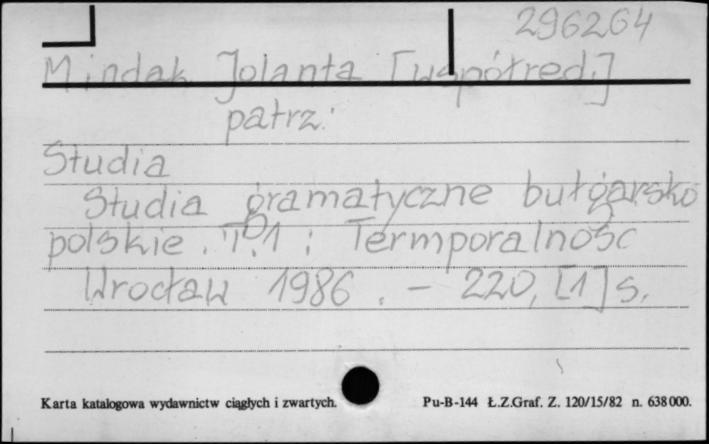 296264
Mindak Jolanta [współred.]
patrz:
Studia
Studia gramatyczne bułgarsko
polskie. T.1: Termporalność
Wrocław 1986. - 220, [1] s.
Karta katalogowa wydawnictw ciągłych i zwartych.
Pu-B-144 Ł.Z.Graf. Z. 120/15/82 n. 638000.